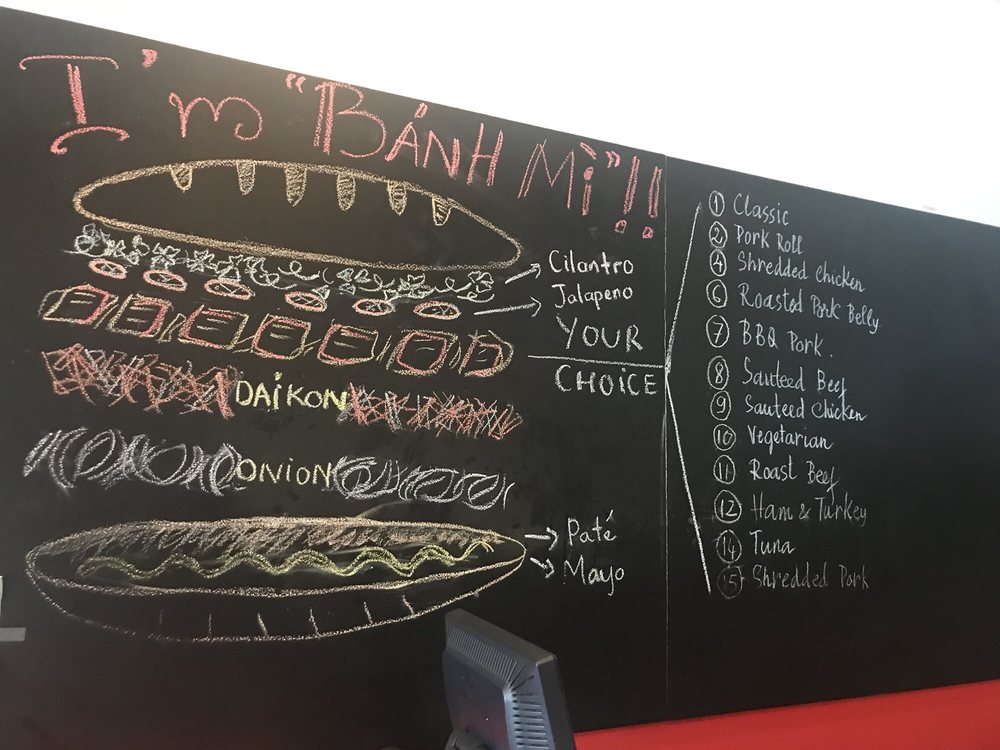 I'm "BÁNH Mì"!!
Cilantro
Jalapeno
YOUR
CHOICE
DAiKON
ONiON
Paté
Mayo
1 Classic
2 Pork Roll
4 Shredded Chicken
6 Roasted Pork Belly
7 BBQ Pork.
8 Sauteed Beef
9 Sauteed Chicken
10 Vegetarian
11 Roast Beef
12 Ham & Turkey
14 Tuna
15 Shredded Pork